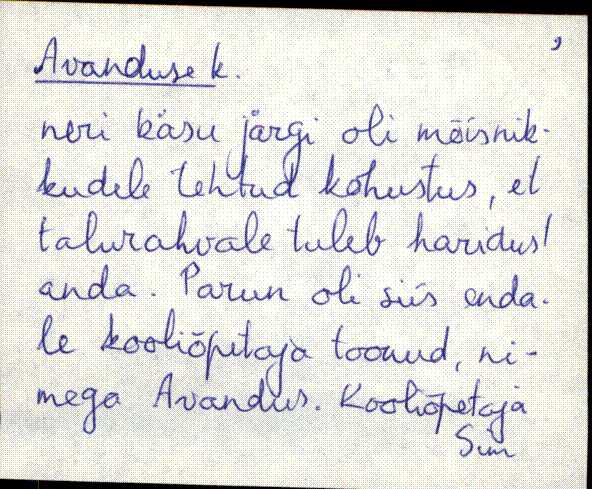 Avanduse k.
neri käsu järgi oli mõisnik-
kudele tehtud kohustus, et
talurahvale tuleb haridust
anda. Parun oli siis enda-
le kooliõpetaja toonud, ni-
mega Avandus. Kooliõpetaja